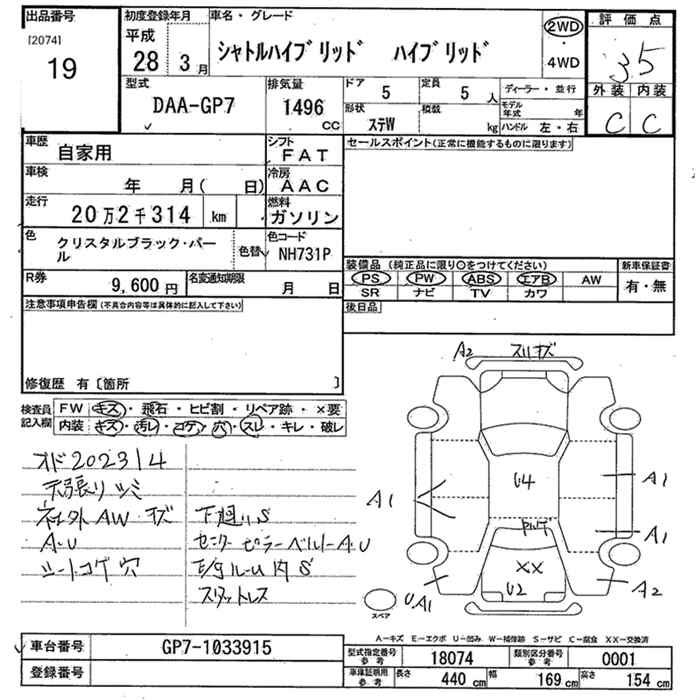 出品番号
[2074]
19
初度登録年月
平成
28 3月
車名・グレード
シャトルハイブリッド ハイブリッド
2WD
4WD
評価点
3.5
外装 内装
C C
型式
DAA-GP7
排気量
1496
CC
ドア 5
定員 5 人
形状 ステW
積載 kg
ディーラー・並行
モデル年式 年
ハンドル 左・右
車歴 自家用
シフト FAT
セールスポイント(正常に機能するものに限ります)
車検 年 月( 日)
冷房 AAC
走行 20万2千314 km
燃料 ガソリン
色 クリスタルブラック・パール
色替
色コード NH731P
装備品 (純正品に限り○をつけてください)
新車保証書
PS PW ABS エアB AW
有・無
SR ナビ TV カワ
R券 9,600円
名変通知期限 月 日
後日品
注意事項申告欄(不具合内容等は具体的に記入して下さい)
修復歴 有〔箇所 〕
検査員記入欄
FW キズ・飛石・ヒビ割・リペア跡・×要
内装 キズ・汚レ・コゲ・穴・スレ・キレ・破レ
オド202314
天張リツミ
社外AWキズ
A・U
シートコゲ穴
下廻りS
センターピラーベルトA・U
E/gルーム内S
スタットレス
A2 スリキズ
A1
U4
A1
PWT
A1
XX
U2
UA1
A2
スペア
A-キズ E-エクボ U-凹み W-補修跡 S-サビ C-腐食 XX-交換済
車台番号 GP7-1033915
型式指定番号 参考 18074
類別区分番号 参考 0001
登録番号
車庫証明用 参考
長さ 440 cm
幅 169 cm
高さ 154 cm